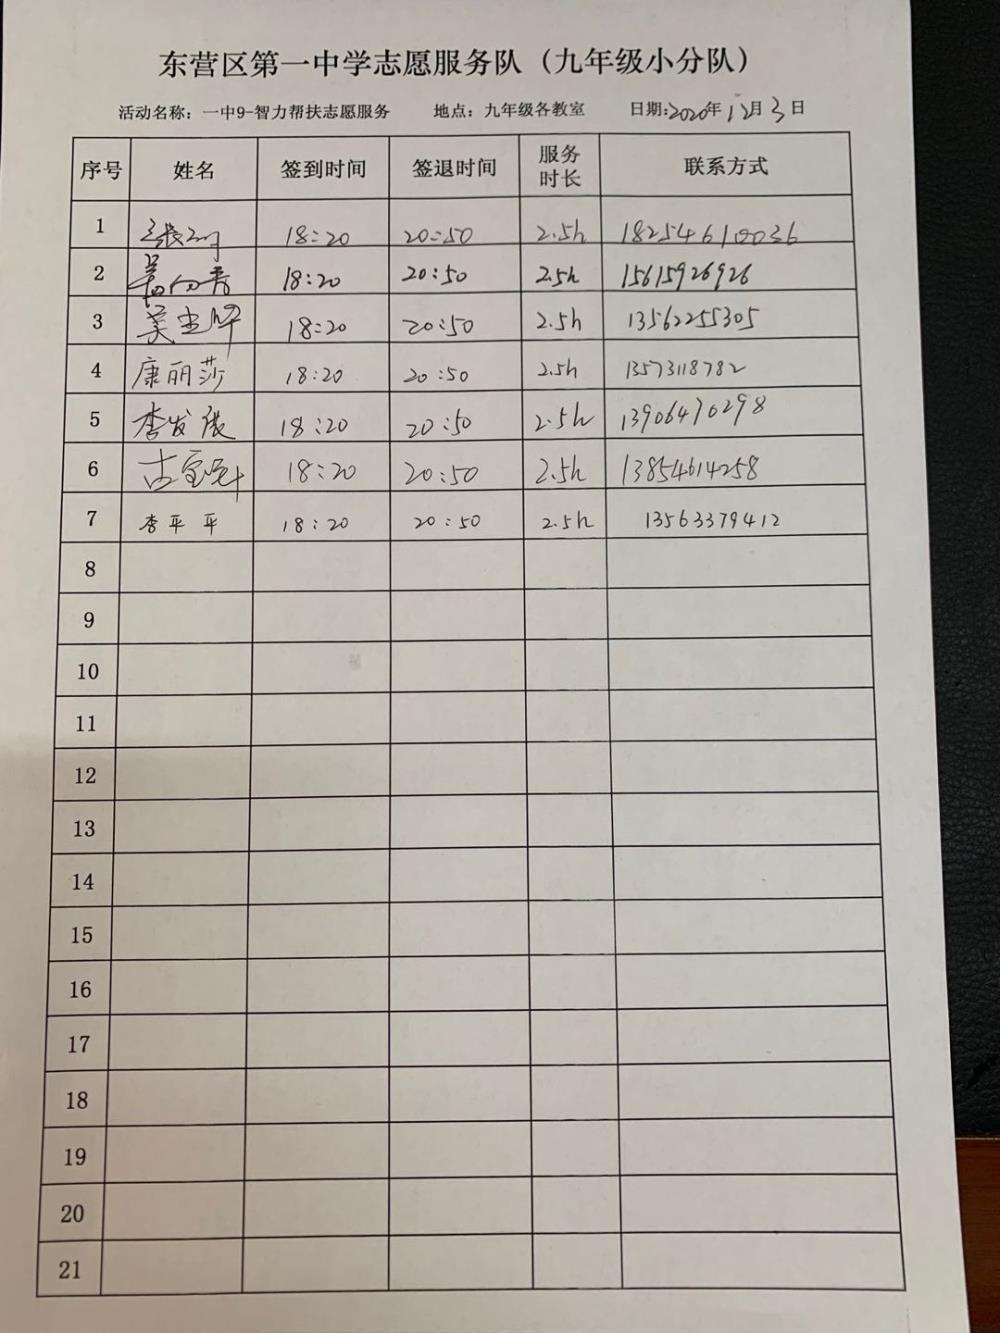 东营区第一中学志愿服务队（九年级小分队）
活动名称：一中9-智力帮扶志愿服务 地点：九年级各教室 日期:2020年12月3日
序号 姓名 签到时间 签退时间 服务时长 联系方式
1 18:20 20:50 2.5h 18254610036
2 18:20 20:50 2.5h 15615926926
3 18:20 20:50 2.5h 13562255305
4 康丽莎 18:20 20:50 2.5h 13573118782
5 李发 18:20 20:50 2.5h 13906470298
6 18:20 20:50 2.5h 13854614258
7 李平平 18:20 20:50 2.5h 13563379412
8
9
10
11
12
13
14
15
16
17
18
19
20
21